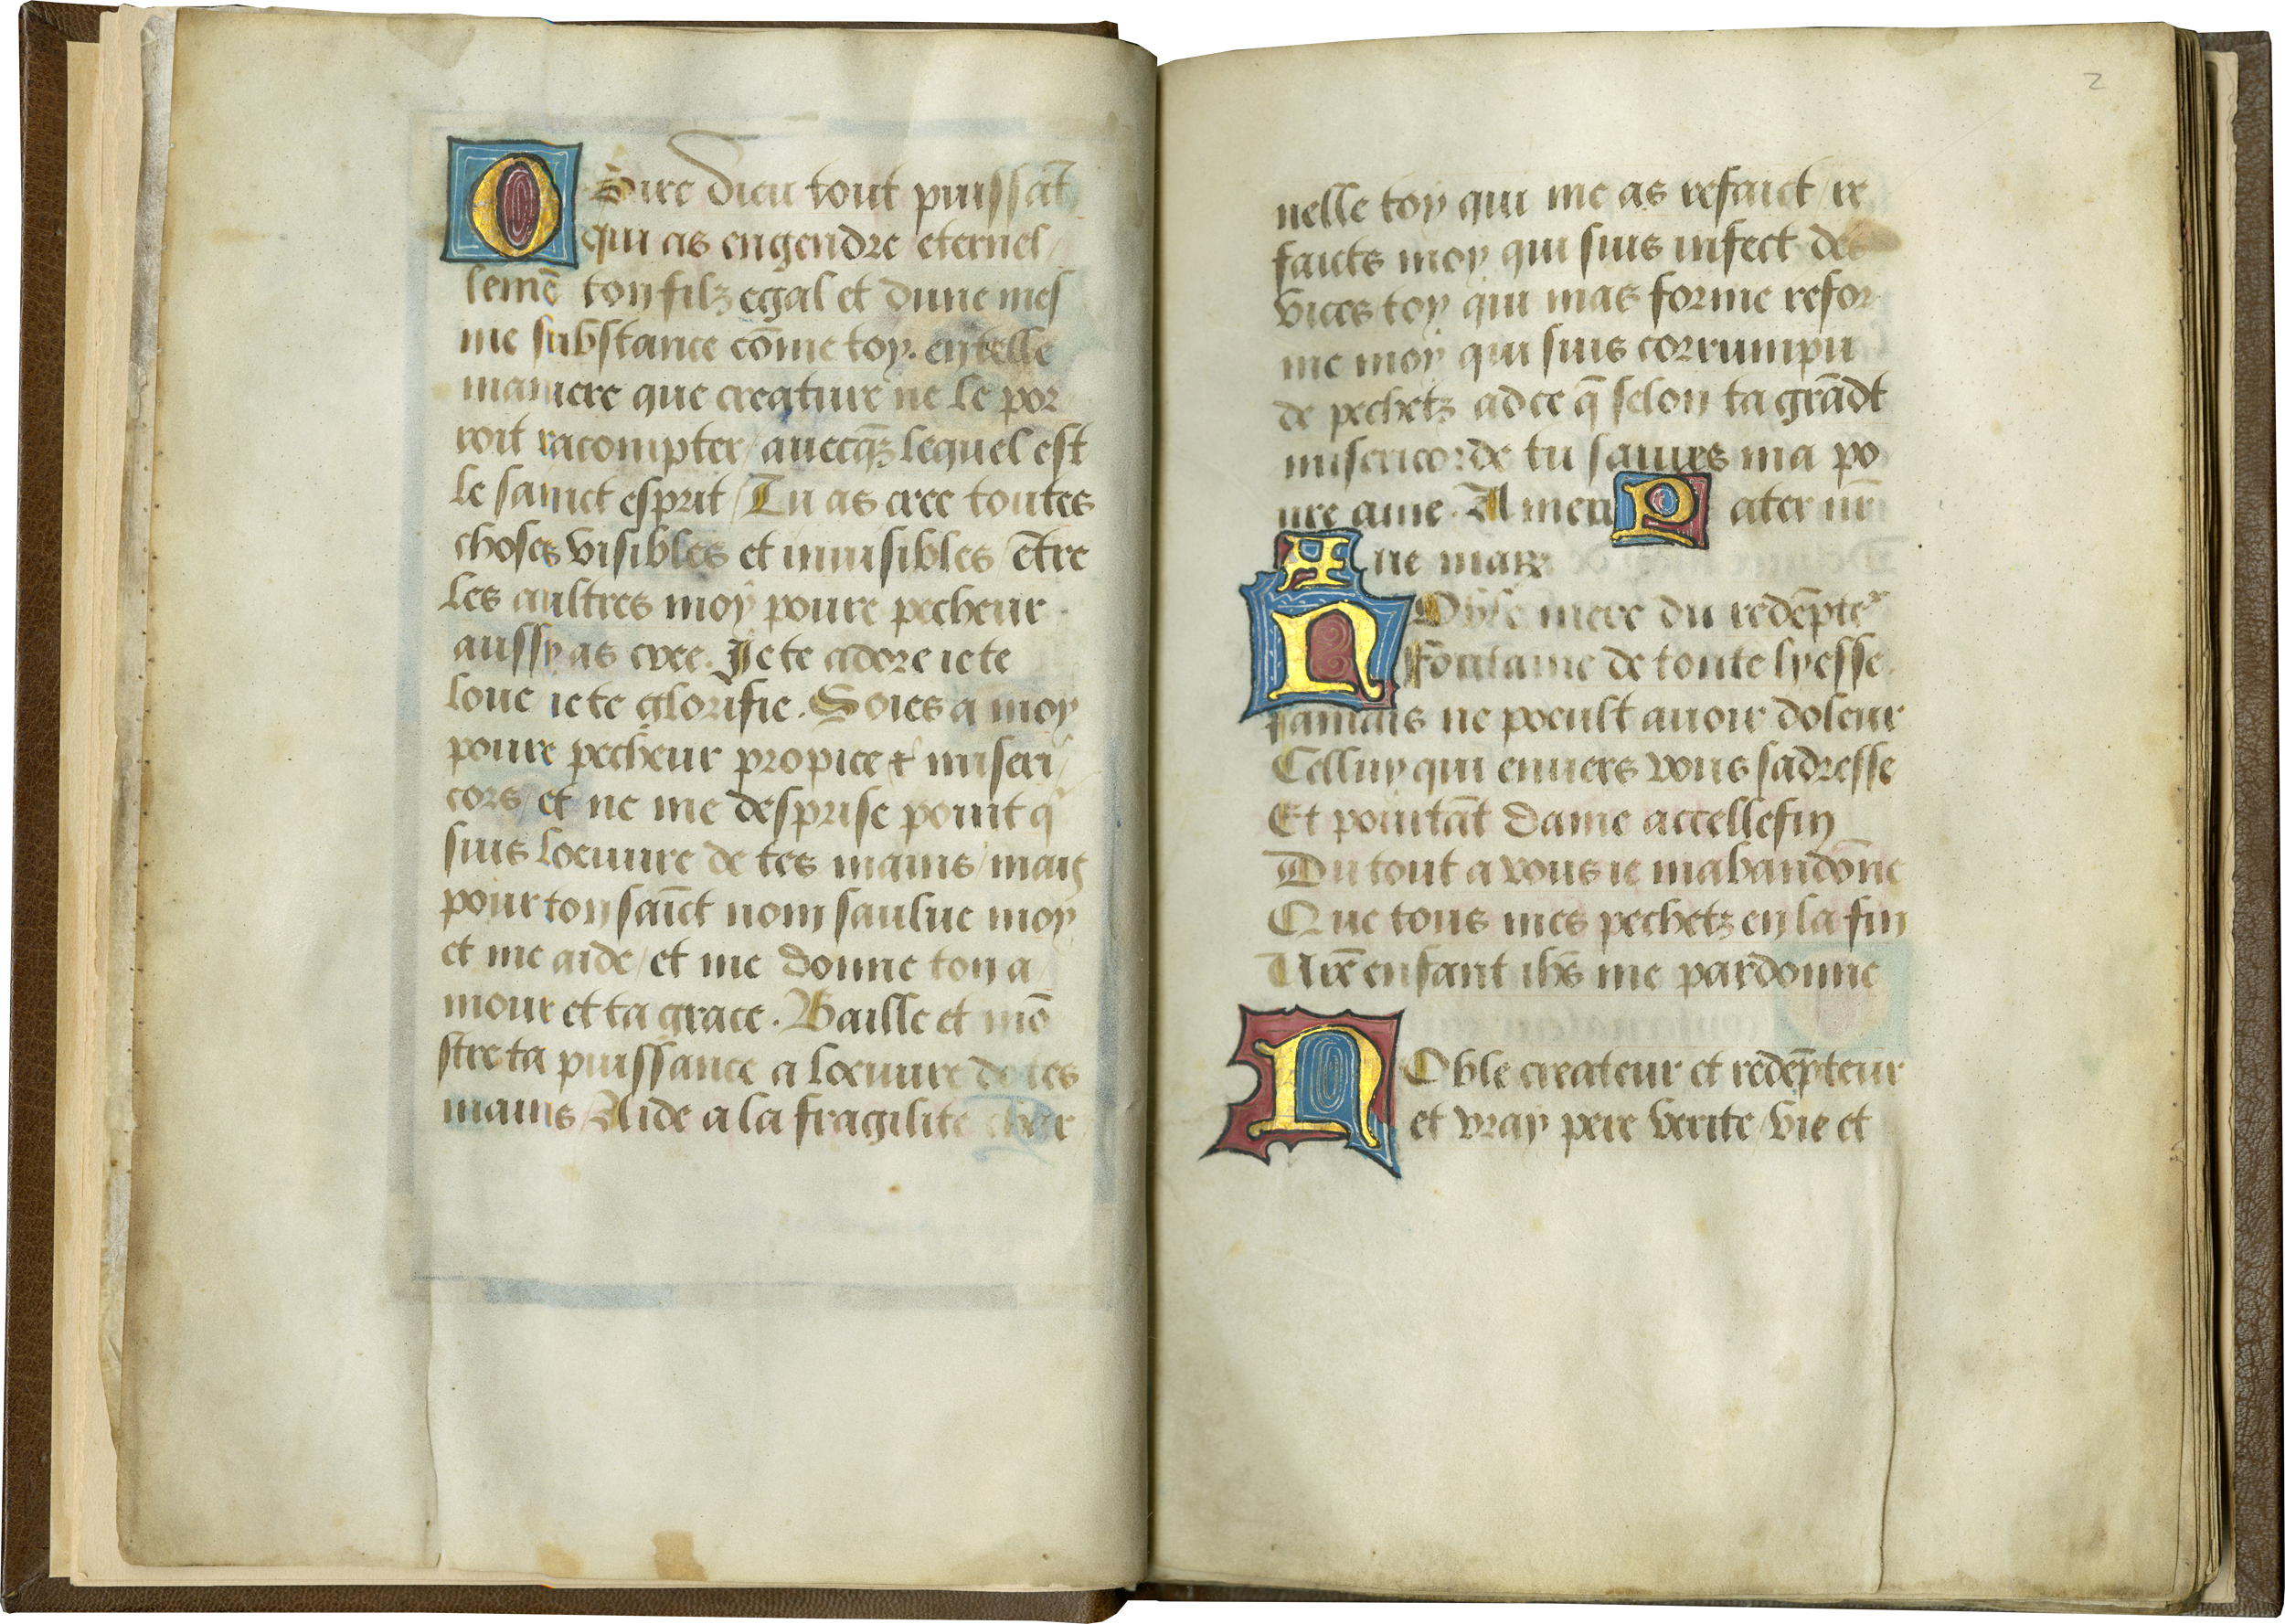 O Sire Dieu tout puissāt
qui as engendre eternel/
lemē ton filz egal et dune mes
me substance cōme toy. en telle
maniere que creature ne le por
roit racompter/auecq̄z lequel est
le sainct esprit/Tu as cree toutes
choses visibles et inuisibles/ētre
les aultres moy poure pecheur
aussy as cree. Je te adore ie te
loue ie te glorifie. Soies a moy
poure pecheur propice & miseri/
cors/et ne me desprise point q̄
suis loeuure de tes mains/mais
pour ton saīct nom saulue moy
et me aide/et me donne ton a/
mour et ta grace. Baille et mō
stre ta puissance a loeuure de tes
mains/Aide a la fragilite char
2
nelle toy qui me as refaict/re
faicts moy qui suis infect des
vices toy qui mas forme refor
me moy qui suis corrumpu
de pechetz adce q̄ selon ta grādt
misericorde tu sauues ma po
ure ame. Amen Pater nr̄
Aue mar
Noble mere du redēpter
Fōntaine de toute lyesse
Jamais ne poeult auoir doleur
Celluy qui enuers vous sadresse
Et pourtāt dame accellefin
Du tout a vous ie mabandōne
Que tous mes pechetz en la fin
Vr̄e enfant ihs̄ me pardonne
NOble createur et redēpteur
et vray pere verite/vie et